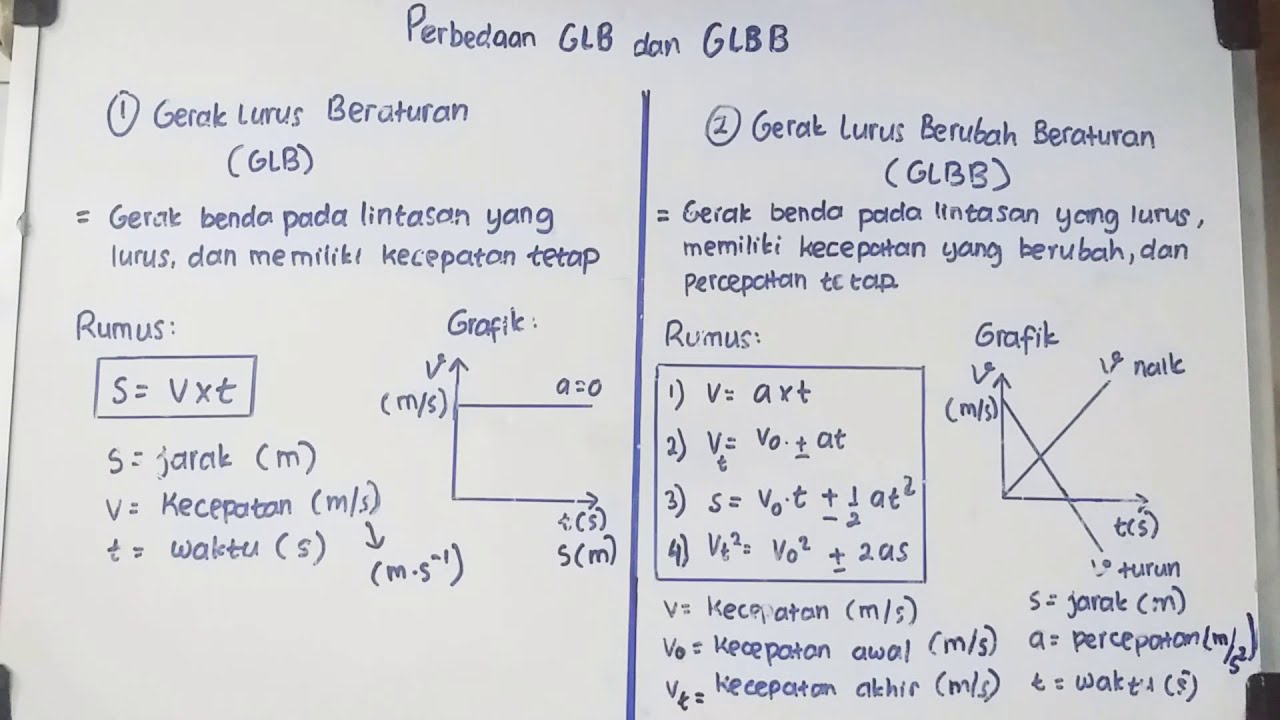 Perbedaan GLB dan GLBB
① Gerak Lurus Beraturan
(GLB)
= Gerak benda pada lintasan yang
lurus, dan memiliki kecepatan tetap
Rumus:
S = V x t
S = jarak (m)
V = Kecepatan (m/s)
(m.s⁻¹)
t = waktu (s)
Grafik:
V
(m/s)
a=0
t(s)
S(m)
② Gerak Lurus Berubah Beraturan
(GLBB)
= Gerak benda pada lintasan yang lurus,
memiliki kecepatan yang berubah, dan
percepatan tetap
Rumus:
1) V = a x t
2) Vt = Vo. ± at
3) S = Vo.t ± 1/2 at²
4) Vt² = Vo² ± 2as
Grafik
V
(m/s)
V naik
t(s)
V turun
V = Kecepatan (m/s)
Vo = Kecepatan awal (m/s)
Vt = Kecepatan akhir (m/s)
S = jarak (m)
a = percepatan (m/s²)
t = waktu (s)